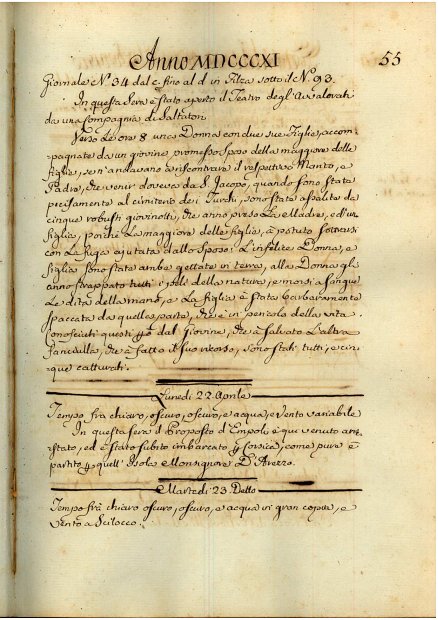 Anno MDCCCXI
55
Giornale N.º 34 dal c. fino al d in Filza sotto il N.º 93.
In questa Sera è stato aperto il Teatro degl'Avvalorati
da una Compagnia di Saltatori.
Verso le ore 8 una Donna con due sue Figlie, accom-
pagnate da un giovine promesso Sposo della maggiore delle
figlie, sen'andavano a riscontrare il respettivo Marito, e
Padre, che venir doveva da S. Jacopo, quando sono state
precisamente al cimiterio dei Turchi, sono state assalite da
cinque robusti giovinotti, che anno preso La Madre, ed una
figlia, poiche La maggiore delle figlie, à potuto sottrarsi
con La fuga ajutata dallo Sposo: L'infelice Donna, e
figlia sono state ambe gettate in terra, alla Donna gli
anno strappato tutti i peli della natura, e morsi a sangue
Le dita della mano, e La figlia è stata barbaramente
spaccata da quella parte, che è in pericolo della vita.
Conosciuti questi dal Giovine, che à salvato L'altra
fanciulla, che à fatto il suo ricorso, sono stati tutti, e cin-
que catturati.
Lunedì 22 Aprile
Tempo frà chiaro, oscuro, oscuro, e acqua, e Vento variabile
In questa sera il Proposto d'Empoli è qui venuto arre-
stato, ed è stato subito imbarcato p. Corsica, come pure è
partito p. quell'Isola Monsignore D'Arezzo.
Martedì 23. Detto
Tempo frà chiaro oscuro, oscuro, e acqua in gran copia, e
vento a Scilocco.